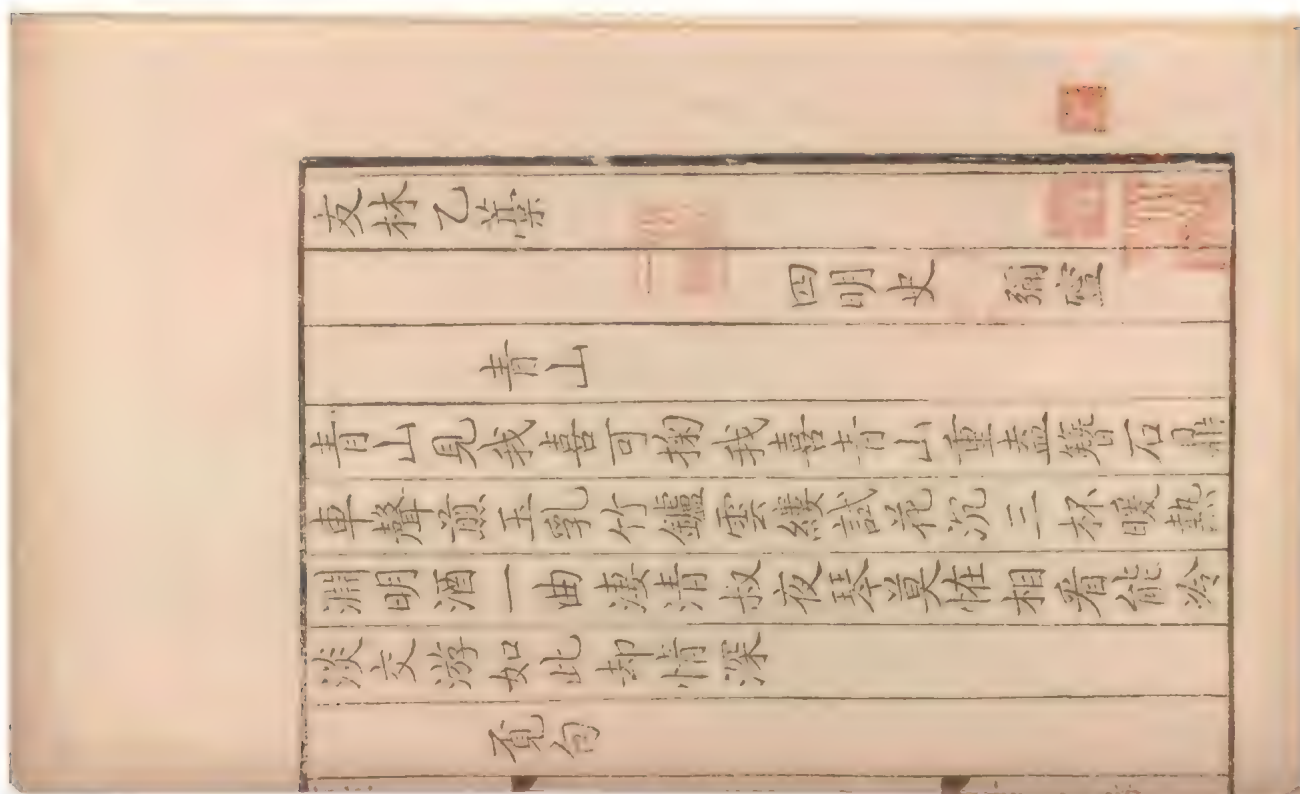 友林乙藳
四明史 彌寧
青山
青山見我喜可掬我喜青山重盍簪石鼎
車聲煎玉乳竹鑪雲縷試花沉三杯暖熱
淵明酒一曲淒清叔夜琴莫怪相看能冷
淡交游如此却情深
覓句